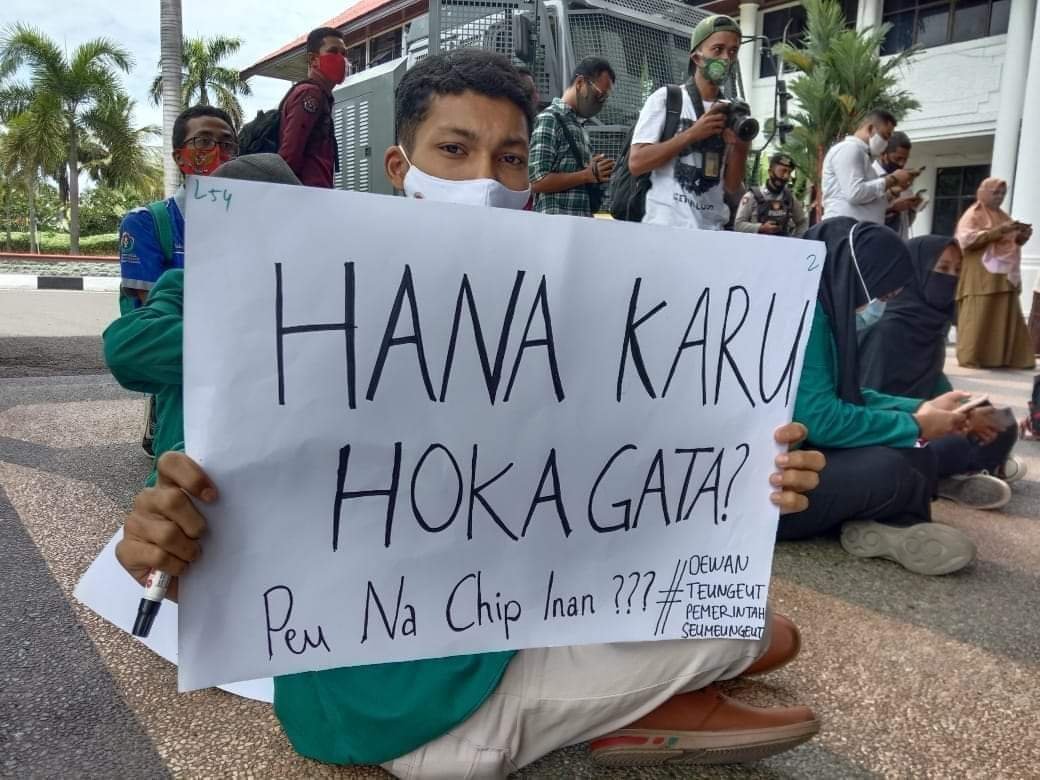 L54
2
HANA KARU
HOKAGATA?
Peu Na Chip Inan ???
#DEWAN
TEUNGEUT
PEMERINTAH
SEUMEUNGEUT